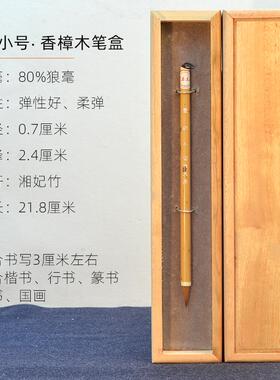 小号·香樟木笔盒
80%狼毫
弹性好、柔弹
0.7厘米
2.4厘米
湘妃竹
21.8厘米
书写3厘米左右
楷书、行书、篆书
书、国画